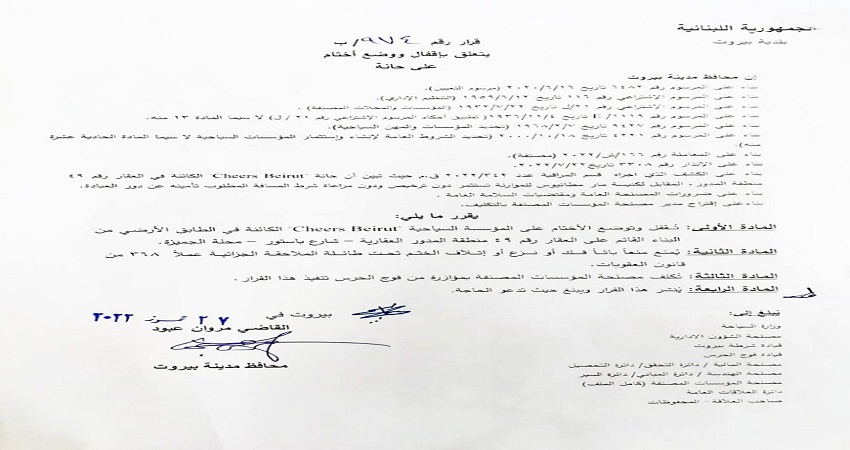 الجمهورية اللبنانية
بلدية بيروت
قرار رقم ٩٧٤/ب
يتعلق بإقفال ووضع أختام
على حانة
إن محافظ مدينة بيروت
بناء على المرسوم رقم ٦٤٨٢ تاريخ ٢٠٢٠/٦/١٦ (مرسوم التعيين).
بناء على المرسوم الإشتراعي رقم ١١٦ تاريخ ١٩٥٩/٦/١٢ (التنظيم الإداري).
بناء على المرسوم الإشتراعي رقم ٢١/ل تاريخ ١٩٣٢/٧/٢٢ (المؤسسات والمحلات المصنفة).
بناء على المرسوم رقم E/١١١٩ تاريخ ١٩٣٦/١١/٤ (تطبيق أحكام المرسوم الاشتراعي رقم ٢١ / ل) لا سيما المادة ١٣ منه.
بناء على المرسوم رقم ٩٤٢٧ تاريخ ١٩٦٨/٢/٧ (تحديد المؤسسات والمهن السياحية).
بناء على المرسوم رقم ٤٢٢١ تاريخ ٢٠٠٠/١٠/١٨ (تحديد الشروط العامة لإنشاء وإستثمار المؤسسات السياحية لا سيما المادة الحادية عشرة
منه).
بناء على المعاملة رقم ١٦٦/ش/٢٠٢٢ (مصنفة).
بناء على الانذار رقم ٣٣٠٨ تاريخ ٢٠٢٢/٧/٢٢.
بناء على الكشف الذي اجراه قسم المراقبة عدد ٢٠٢٢/٣٤٢ ق.م حيث تبين أن حانة "Cheers Beirut" الكائنة في العقار رقم ٤٩
منطقة المدور، المقابل لكنيسة مار مطانيوس للموارنة تستثمر دون ترخيص ودون مراعاة شرط المسافة المطلوب تأمينه عن دور العبادة.
بناء على ضرورات المصلحة العامة ومقتضيات السلامة العامة.
بناء على إقتراح مدير مصلحة المؤسسات المصنفة بالتكليف.
يقرر ما يلي:
المادة الأولى: تُقفل وتوضع الأختام على المؤسسة السياحية "Cheers Beirut" الكائنة في الطابق الأرضي من
البناء القائم على العقار رقم ٤٩ منطقة المدور العقارية – شارع باستور – محلة الجميزة.
المادة الثانية: يُمنع منعاً باتاً فك أو نزع أو إتلاف الختم تحت طائلة الملاحقة الجزائية عملاً ٣٦٨ من
قانون العقوبات.
المادة الثالثة: تُكلف مصلحة المؤسسات المصنفة بمؤازرة من فوج الحرس تنفيذ هذا القرار.
المادة الرابعة: يُنشر هذا القرار ويبلغ حيث تدعو الحاجة.
بيروت في ٢٧ تموز ٢٠٢٢
القاضي مروان عبود
محافظ مدينة بيروت
يُبلغ إلى:
وزارة السياحة
مصلحة الشؤون الادارية
قيادة شرطة بيروت
قيادة فوج الحرس
مصلحة المالية / دائرة التحقق/ دائرة التحصيل
مصلحة الهندسة / دائرة المباني/ دائرة السير
مصلحة المؤسسات المصنفة (كامل الملف)
دائرة العلاقات العامة
صاحب العلاقة- المحفوظات